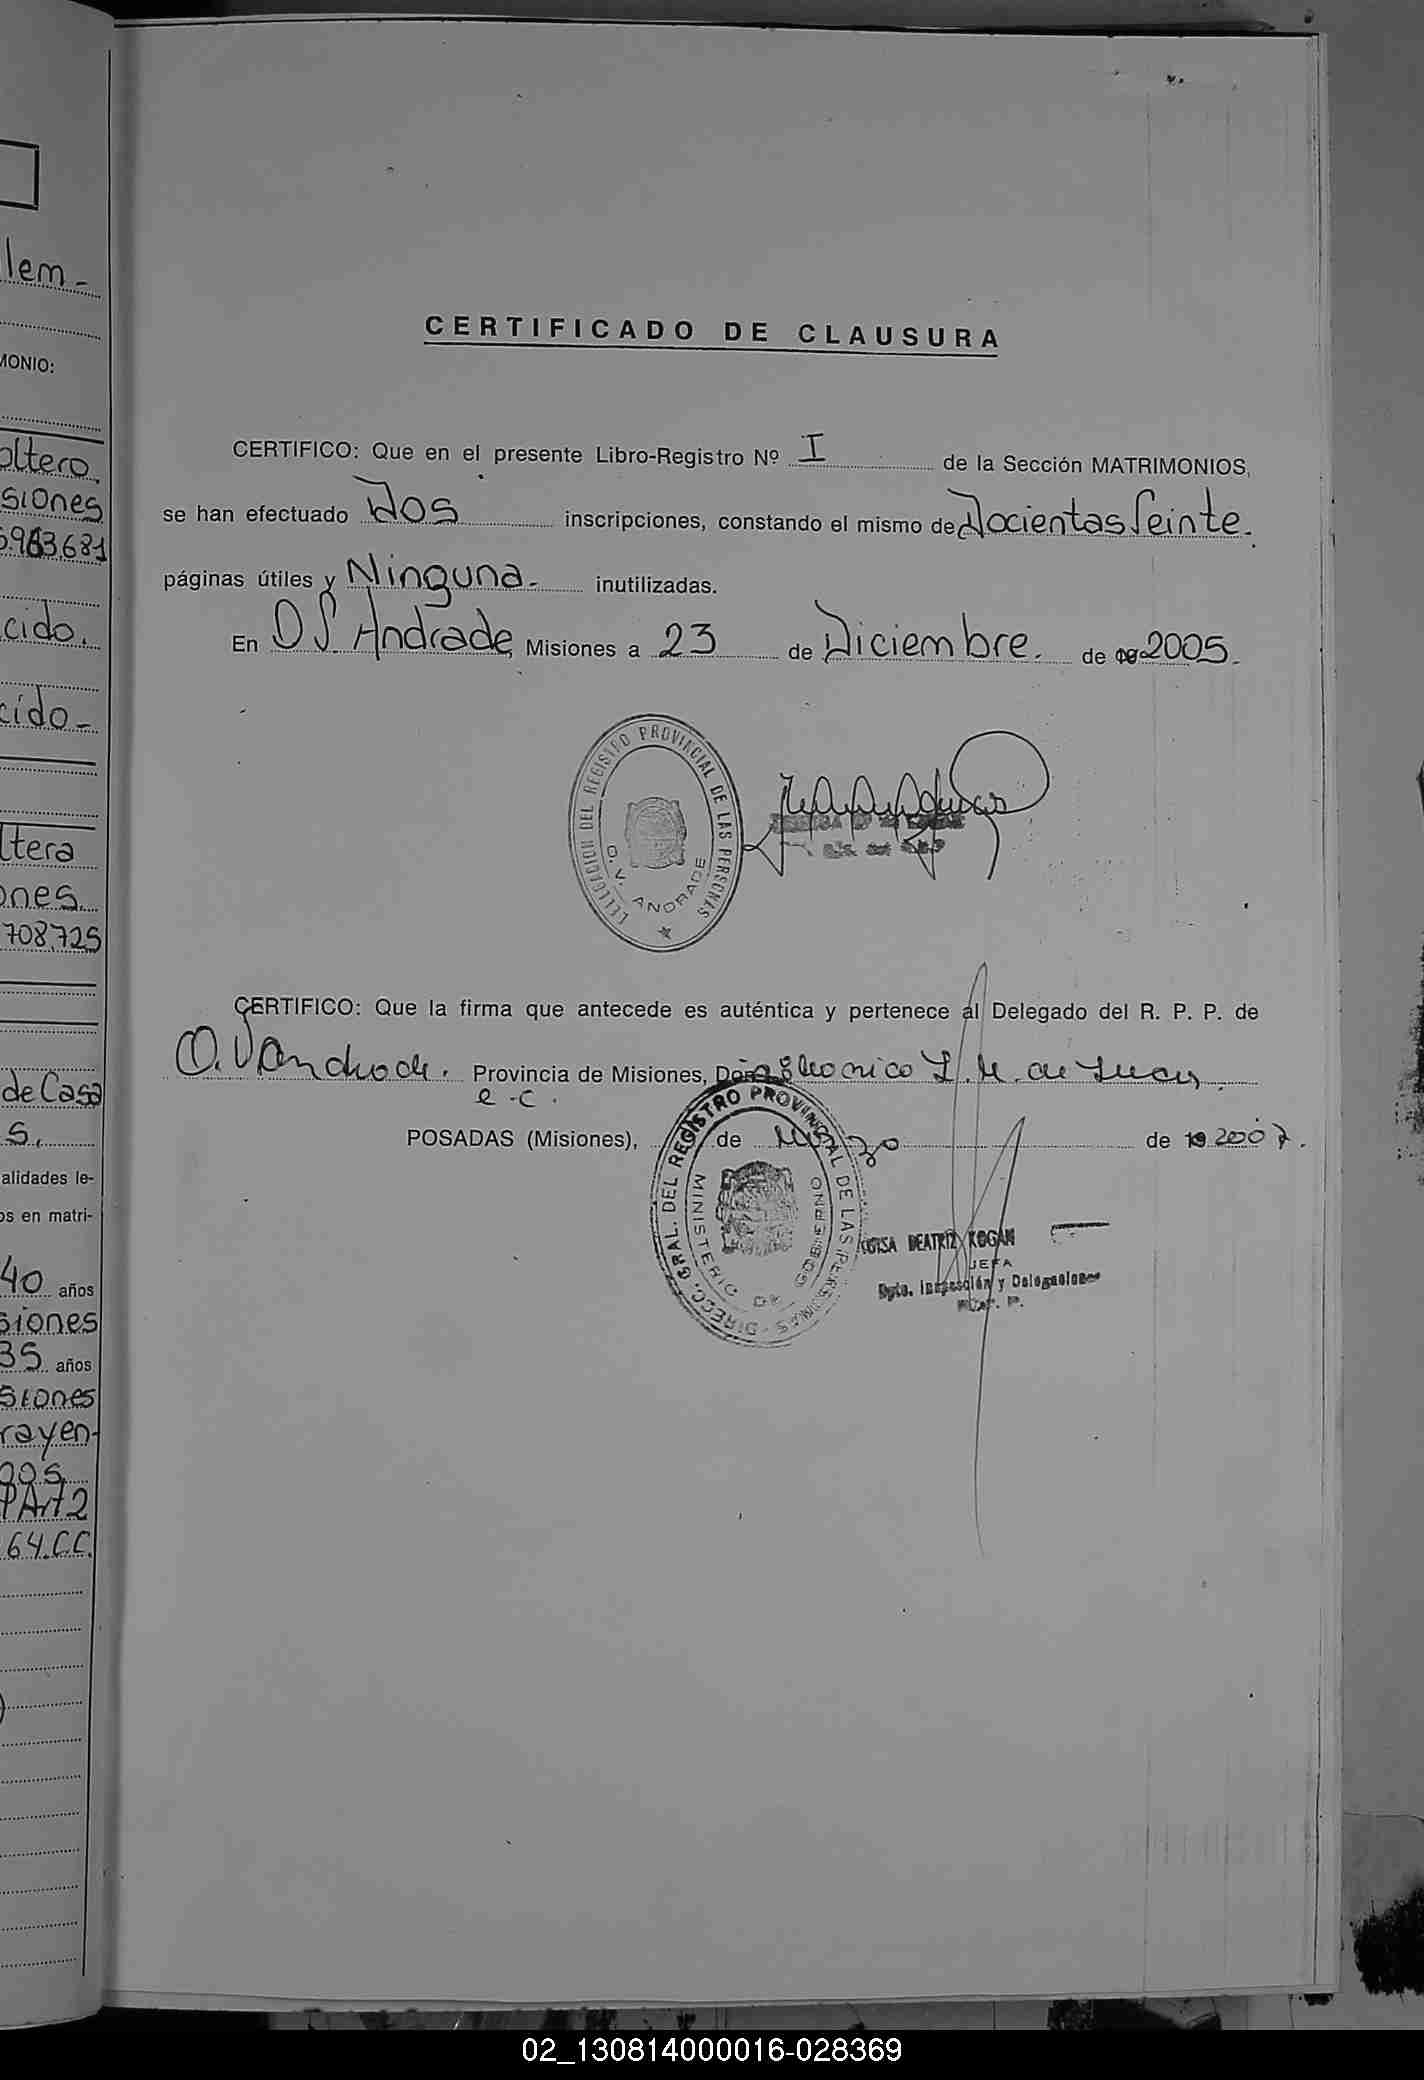 lem-
MONIO:
oltero
siones
5.963.681
cido.
cido-
ltera
ones
708.725
de Casa
s.
alidades le-
os en matri-
40 años
siones
35 años
siones
rayen-
PArt2
64.C.C.
CERTIFICADO DE CLAUSURA
CERTIFICO: Que en el presente Libro-Registro Nº I de la Sección MATRIMONIOS,
se han efectuado Dos inscripciones, constando el mismo de Docientas Veinte.
páginas útiles y Ninguna.- inutilizadas.
En O V. Andrade, Misiones a 23 de Diciembre. de 19 2005.
DELEGACION DEL REGISTRO PROVINCIAL DE LAS PERSONAS
O. V. ANDRADE
CERTIFICO: Que la firma que antecede es auténtica y pertenece al Delegado del R. P. P. de
O. V Andrade. Provincia de Misiones, Doña
e.c.
POSADAS (Misiones), de Marzo de 19 2007.
DIRECC. GRAL. DEL REGISTRO PROVINCIAL DE LAS PERSONAS
MINISTERIO DE GOBIERNO
LUISA BEATRIZ KOGAN
JEFA
Dpto. Inspección y Delegaciones
02_130814000016-028369